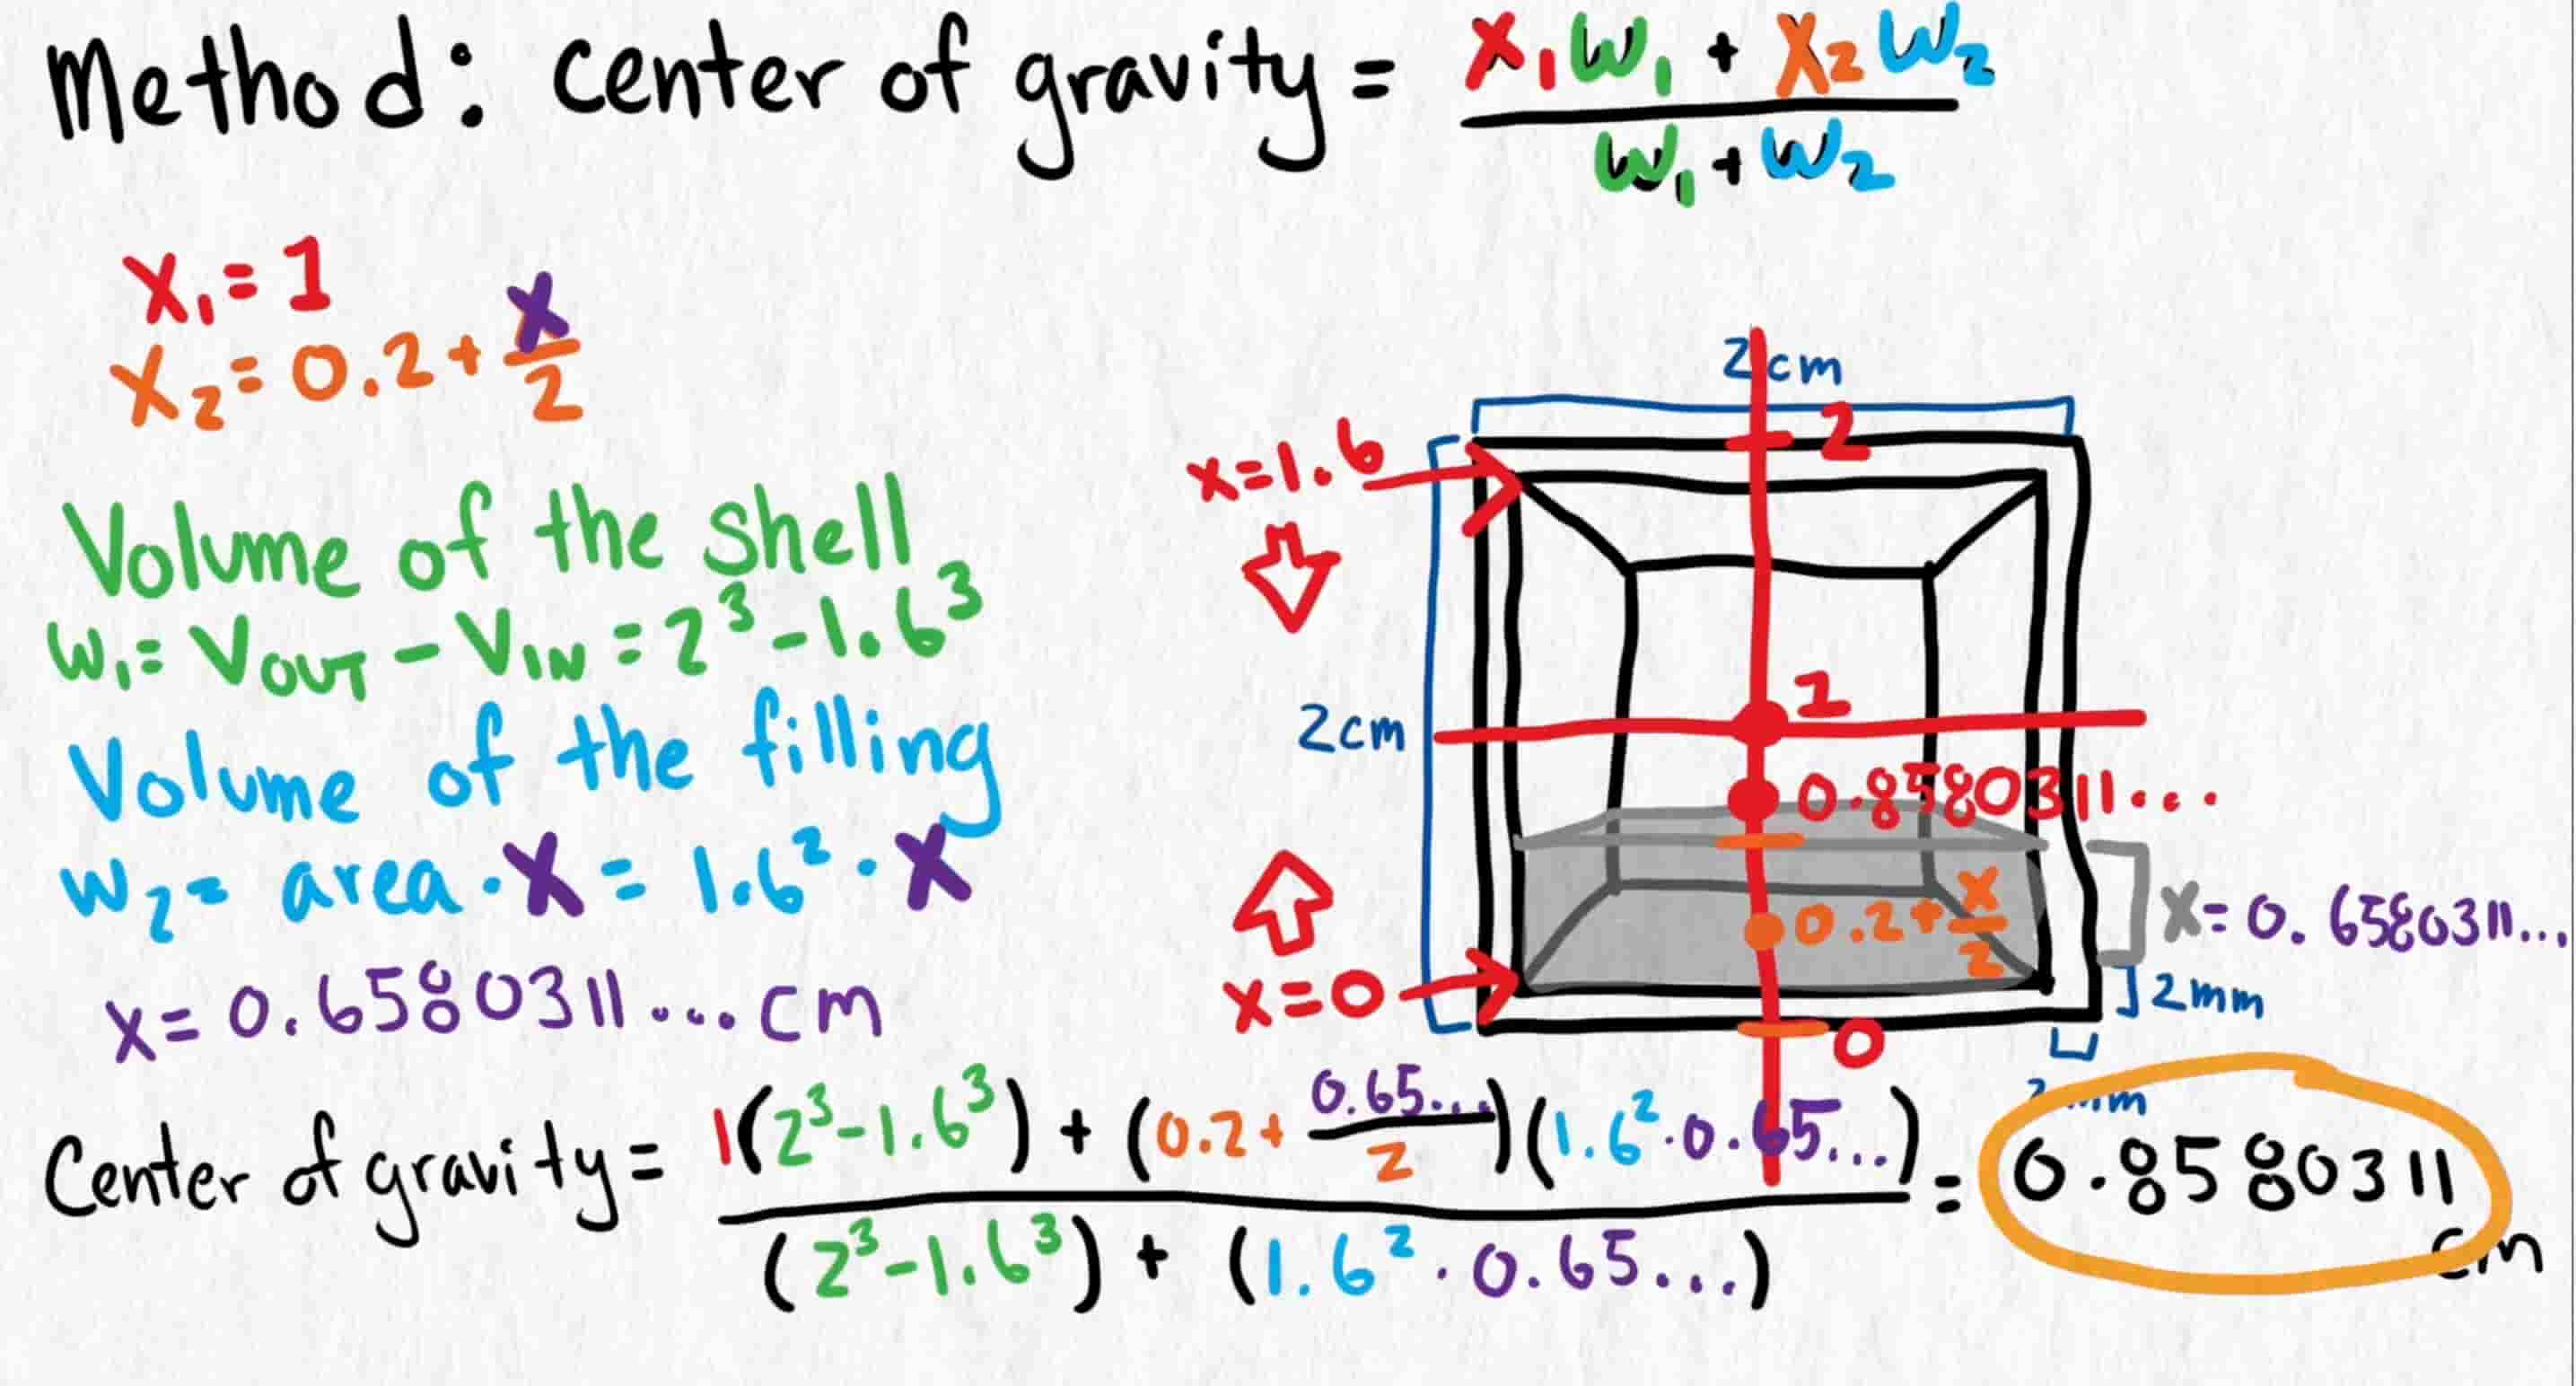 Method: center of gravity = (x₁w₁ + x₂w₂) / (w₁ + w₂)
x₁ = 1
x₂ = 0.2 + x/2
Volume of the shell
w₁ = V_OUT - V_IN = 2³ - 1.6³
Volume of the filling
w₂ = area · x = 1.6² · x
x = 0.6580311... cm
2cm
2
x=1.6
1
2cm
0.8580311...
0.2 + x/2
x= 0.6580311...
x=0
2mm
0
Center of gravity = (1(2³ - 1.6³) + (0.2 + 0.65.../2)(1.6² · 0.65...)) / ((2³ - 1.6³) + (1.6² · 0.65...)) = 0.8580311
cm